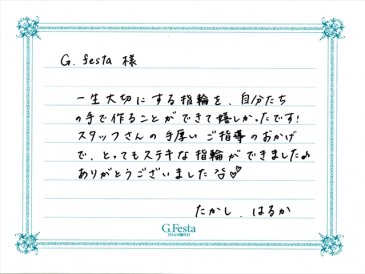 G. festa 様
一生大切にする指輪を、自分たち
の手で作ることができて嬉しかったです!
スタッフさんの手厚いご指導のおかげ
で、とってもステキな指輪ができました♪
ありがとうございました
たかし、はるか
G.Festa
DIAMOND